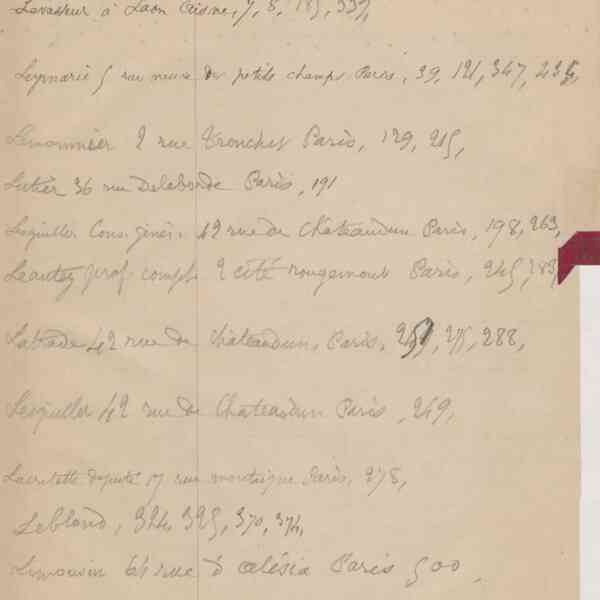 Levasseur à Laon Aisne, 7, 8, 185, 337,
Leymarie 5 rue neuve des petits champs Paris, 39, 121, 347,
Lemonnier 2 rue Tronchet Paris, 129, 215,
Lutier 36 rue Delaborde Paris, 191
Lesguiller Cons. génér. 42 rue de Chateaudun Paris, 198, 263,
Leautey prof. compt. 2 cité rougemont Paris, 245, 283,
Labadie 42 rue de chateaudun, Paris, 288,
Lesguiller 42 rue de Chateaudun Paris, 249,
Lacretelle député 17 rue montaigne Paris, 278,
Leblond, 324, 325, 370, 374,
Limousin 44 rue d alésia Paris 500